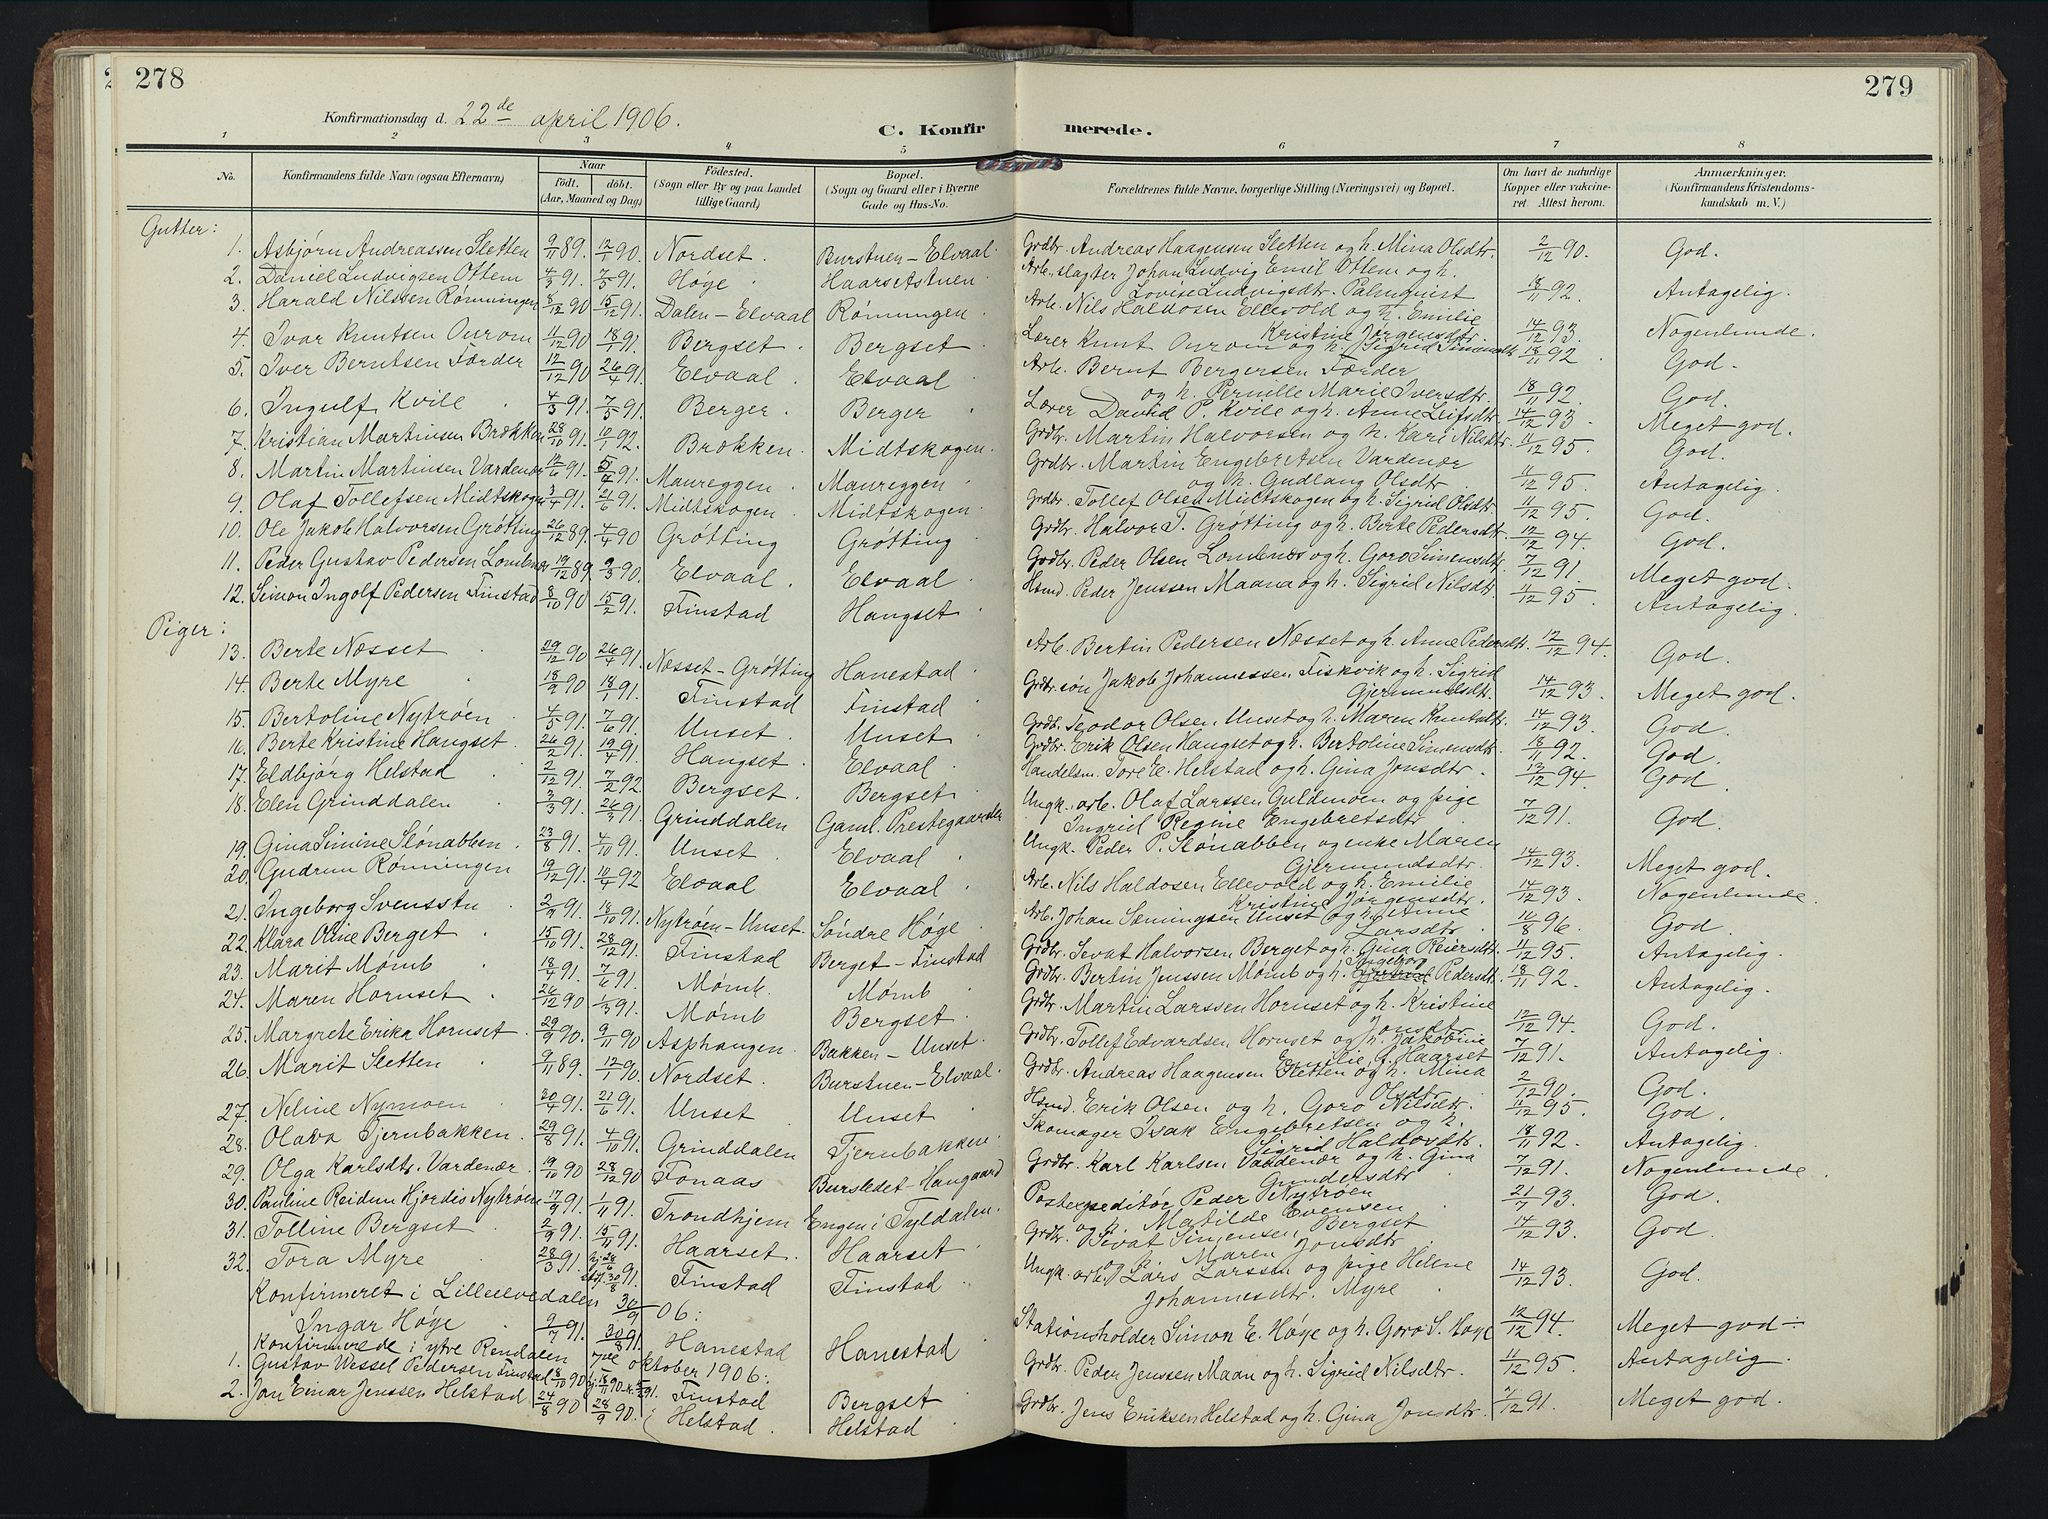 278
Konfirmationsdag d. 22de april 1906.
C. Konfirmerede.
279
1 2 3 4 5 6 7 8
No.
Konfirmandens fulde Navn (ogsaa Efternavn).
Naar
födt. döbt.
(Aar, Maaned og Dag)
Födested.
(Sogn eller By og paa Landet
tillige Gaard)
Bopæl.
(Sogn og Gaard eller i Byerne
Gade og Hus-No.
Forældrenes fulde Navne, borgerlige Stilling (Næringsvei) og Bopæl.
Om havt de naturlige
Kopper eller vakcine-
ret. Attest herom.
Anmærkninger.
(Konfirmandens Kristendoms-
kundskab m. V.)
Gutter:
1. Asbjørn Andreassen Sletten 9/11 89. 12/1 90. Nordset. Burstuen-Elvaal. Grdbr. Andreas Haagensen Sletten og h. Mina Olsdtr. 2/12 90. God.
2. Daniel Ludvigsen Ottem 4/3 91. 7/5 91. Høge Haars Astuen Arb. slagter Johan Ludvig Emil Ottem og h.
Lovise Ludvigsdtr. Palmquist 18/11 92. Antagelig.
3. Harald Nilssen Rønningen 8/12 90 15/12 91. Dalen-Elvaal Rønningen. Arb. Nils Haldosen Ellevold og h. Emilie
Kristine Jørgensdtr. 14/12 93. Nogenlunde.
4. Ivar Knutsen Ourom 11/12 90 18/1 91. Bergset. Bergset. Lærer Knut Ourom og h. Sigrid Simensdtr. 18/11 92 God.
5. Iver Berntsen Færder 17/12 90 26/4 91. Elvaal. Elvaal. Arb. Bernt Bergersen Færder
og h. Pernille Marie Iversdtr. 18/11 92. God.
6. Ingulf Kvile 4/3 91. 7/5 91. Berger. Berger Lærer David P. Kvile og h. Anne Leifsdtr. 14/12 93. Meget god.
7. Kristian Martinsen Brækken 28/10 91. 10/1 92. Brækken. Midtskogen. Grdbr. Martin Halvorsen og h. Kari Nilsdtr. 11/12 95. God.
8. Martin Martinsen Vardenær 14/6 91. 5/7 91. Maureggen. Maureggen Grdbr. Martin Engebretsen Vardenær
og h. Gudlaug Olsdtr. 11/12 95. Antagelig.
9. Olaf Tollefsen Midtskogen 3/4 91. 21/6 91. Midtskogen. Midtskogen. Grdbr. Tollef Olsen Midtskogen og h. Sigrid Olsdtr. 11/12 95. God.
10. Ole Jakob Halvorsen Grøtting 26/12 89. 4/4 90 Grøtting Grøtting. Grdbr. Halvor T. Grøtting og h. Berte Pedersdtr. 12/12 94. God.
11. Peder Gustav Pedersen Lombnæs 19/12 89. 9/3 90. Elvaal. Elvaal. Grdbr. Peder Olsen Lombnæs og h. Goro Simensdtr. 7/12 91. Meget god.
12. Simon Ingolf Pedersen Finstad 8/10 90 15/2 91. Finstad Hangset Hsmd. Peder Jenssen Maana og h. Sigrid Nilsdtr. 11/12 95. Antagelig.
Piger:
13. Berte Næsset 29/12 90 26/4 91. Næsset-Grøtting Hanestad Arb. Bertin Pedersen Næsset og h. Anne Pedersdtr. 12/12 94. God.
14. Berte Myre 18/9 90 18/1 91. Finstad Finstad Grdbr. søn Jakob Johannessen Fiskvik og h. Sigrid
Gjermundsdtr. 14/12 93. Meget god.
15. Bertoline Nytrøen 4/5 91. 7/6 91. Unset. Unset. Grdb. Teodor Olsen Unset og h. Maren Knutsdtr. 14/12 93. God.
16. Berte Kristine Hangset. 26/2 91. 19/4 91. Hangset. Elvaal Grdbr. Erik Olsen Hangset og h. Bertoline Simensdtr. 18/11 92. God.
17. Eldbjörg Helstad 2/12 91. 7/2 92. Bergset. Bergset. Handelsm. Tore E. Helstad og h. Gina Jonsdtr. 13/12 94. God
18. Elen Grinddalen 3/3 91. 26/3 91. Grinddalen Gaml. Prestegaarden Ungk. arb. Olaf Larssen Guldmoen og pige
Ingrid Regine Engebretsdtr. 7/12 91. God.
19. Gina Simine Slønabben. 23/8 91. 4/10 91. Unset. Elvaal Ungk. Peder P. Slønabben og enke Maren
Gjermundsdtr. 14/12 93. Meget god.
20. Gudrun Rønningen 19/12 91. 10/4 92 Elvaal Elvaal Arb. Nils Haldosen Ellevold og h. Emilie
Kristine Jørgensdtr. 14/12 93. Nogenlunde.
21. Ingeborg Svensstu 2/9 91. 18/10 91. Nytrøen-Unset. Söndre Høge. Arb. Johan Sæmingsen Unset og h. Anne
Larsdtr. 10/8 96. God.
22. Klara Oline Berget. 15/10 91. 28/12 91. Finstad Berget-Finstad Grdbr. Sevat Halvorsen Berget og h. Gina Reiersdtr. 11/12 95. Antagelig.
23. Marit Mømb 18/4 91. 7/6 91. Mømb. Mømb Grdbr. Bertin Jenssen Mømb og h. Ingeborg Pedersdtr. 18/11 92. Antagelig.
24. Maren Hornset 26/12 90 1/3 91. Mømb Bergset. Grdbr. Martin Larssen Hornset og h. Kristine
Jonsdtr. 12/12 94. God.
25. Margrete Erika Hornset. 29/9 90. 9/11 90 Asphaugen Bakken-Unset. Grdbr. Tollef Edvardsen Hornset og h. Jakobine
Emilie G. Haarset 7/12 91. Antagelig.
26. Marit Sletten 9/11 89. 12/1 90. Nordset. Burstuen-Elvaal. Grdbr. Andreas Haagensen Sletten og h. Mina
Olsdtr. 2/12 90. God.
27. Neline Nymoen 30/4 91. 21/6 91. Unset Unset Hsmd. Erik Olsen og h. Goro Nilsdtr. 11/12 95. God.
28. Olava Tjernbakken. 29/8 91. 4/10 91. Grinddalen Tjernbakken. Skomager Isak Engebretsen og h.
Sigrid Haldosdtr. 18/11 92. Antagelig.
29. Olga Karlsdtr. Vardenær. 19/10 90 28/12 90 Fonaas Bursledet-Haugaard Grdbr. Karl Karlsen Vardenær og h. Gina
Gundersdtr. 7/12 91. Nogenlunde.
30. Pauline Reidun Hjørdis Nytrøen 17/9 91. 1/11 91. Trondhjem Engen i Tyldalen. Postexpeditør Peder Nytrøen
og h. Matilde Evensen 21/7 93. God.
31. Tolline Bergset. 2/9 91. 15/11 91. Haarset. Haarset. Grdbr. Sivat Simensen Bergset
og h. Maren Jonsdtr. 14/12 93. God.
32. Tora Myre 28/3 91. hj. 28/6 stf. 30/8 91. Finstad Finstad Ungk. arb. Lars Larssen og pige Helene
Johannesdtr. Myre 14/12 93. God.
Konfirmeret i Lilleelvedalen 30/9 06:
Ingar Høge 9/7 91. 30/8 91. Hanestad Hanestad Stationsholder Simon E. Høye og h. Goro S. Høge 12/12 94. Meget god
Konfirmerede i ytre Rendalen 7de oktober 1906:
1. Gustav Wessel Pedersen Finstad 8/10 90 Finstad Bergset Grdbr. Peder Jenssen Maan og h. Sigrid Nilsdtr. 11/12 95. Antagelig.
2. Jon Einar Jenssen Helstad 24/8 90 28/9 90. Helstad. Helstad Grdbr. Jens Eriksen Helstad og h. Gina Jonsdtr. 7/12 91. Meget god.